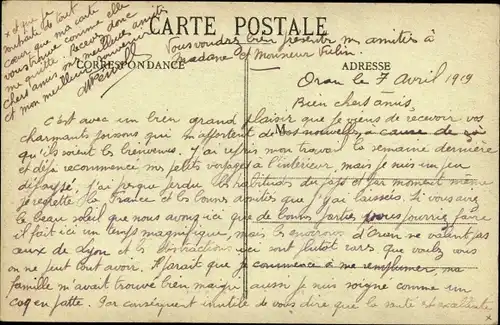 x et que je
souhaite de tout
cœur que ma carte
vous trouve comme elle
me quitte. Recevez donc
chers amis mes meilleures amitiés
et mon meilleur souvenir
CARTE POSTALE
Vous voudrez bien présenter m amitiés à
Madame et Monsieur
CORRESPONDANCE
ADRESSE
Oran le 7 Avril 1919
Bien chers amis.
C'est avec un bien grand plaisir que je viens de recevoir vos
charmants qui m'apportent de vos nouvelles, à cause de ça
qu'ils soient les bienvenus. J'ai repris mon travail la semaine dernière
et déjà recommencé mes petits voyages à l'intérieur, mais je suis un peu
J'ai presque perdu les habitudes du pays et par moment même
je regrette la France et les bonnes amitiés que j'y ai laissées. Si vous aviez
le beau soleil que nous avons ici que de bonnes parties vous pourriez faire
il fait ici un temps magnifique, mais les environs d'Oran ne valent pas
ceux de Lyon et les distractions ici sont plutôt rares que voulez vous
on ne peut tout avoir. Il parait que je commence à me remplumer, ma
famille m'avait trouvé bien maigre aussi je suis soigné comme un
coq en patte. Par conséquent inutile de vous dire que la santé est excellente
x